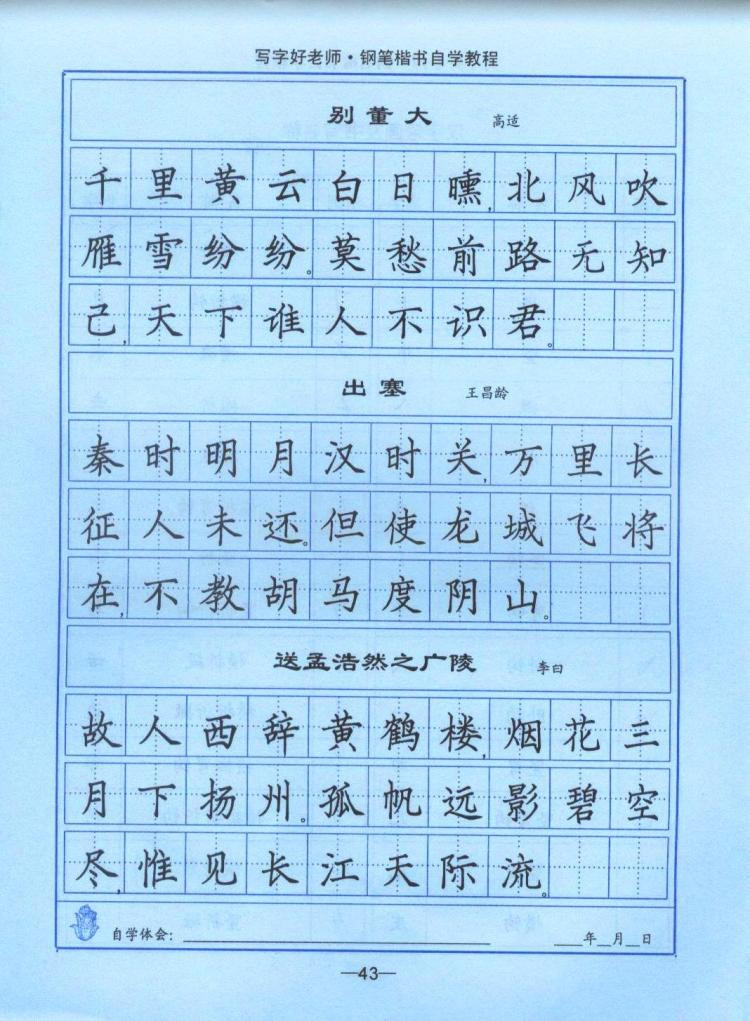 写字好老师·钢笔楷书自学教程
别董大 高适
千里黄云白日曛，北风吹
雁雪纷纷。莫愁前路无知
己，天下谁人不识君。
出塞 王昌龄
秦时明月汉时关，万里长
征人未还。但使龙城飞将
在，不教胡马度阴山。
送孟浩然之广陵 李白
故人西辞黄鹤楼，烟花三
月下扬州。孤帆远影碧空
尽，惟见长江天际流。
自学体会：______ __年__月__日
—43—